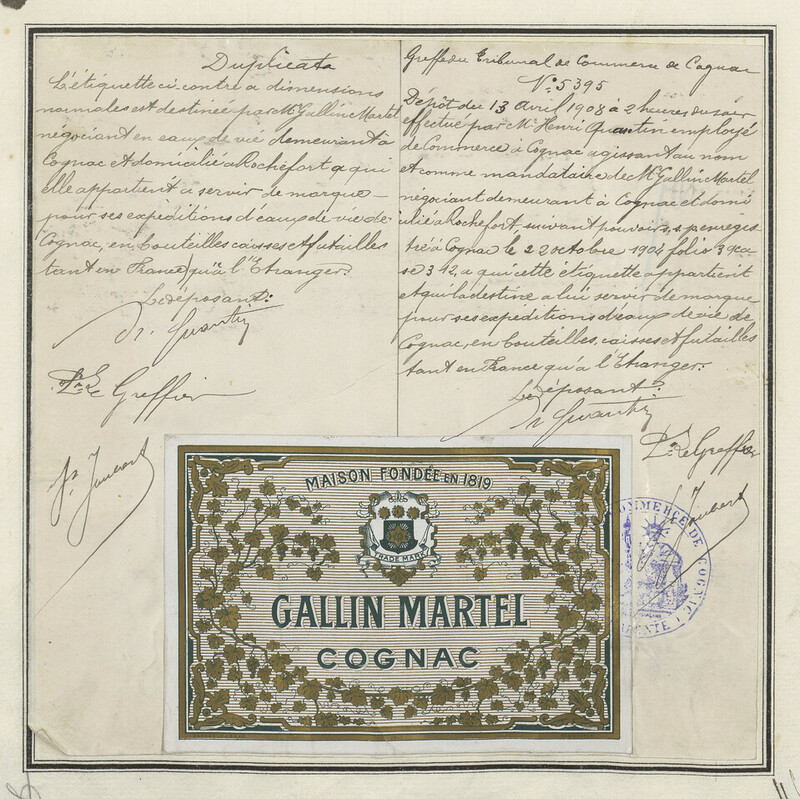 Duplicata
L'étiquette ci-contre a dimensions
normales est destinée par Mr Gallin Martel
négociant en eaux de vie demeurant à
Cognac et domicilié à Rochefort a qui
elle appartient a servir de marque
pour ses expéditions d'eaux de vie de
Cognac, en bouteilles caisses et futailles
tant en France qu'à l'Etranger.
Le déposant:
Le Greffier
Greffe du Tribunal de Commerce de Cognac
No 5395
Dépôt du 13 Avril 1908 à 2 heures du soir
effectué par Mr Henri Quantin employé
de Commerce à Cognac agissant au nom
et comme mandataire de Mr Gallin Martel
négociant demeurant à Cognac et domi
cilié à Rochefort, suivant pouvoirs, s.p. enregis
tré à Cognac le 22 octobre 1904 folio 39 ca
se 392, a qui cette étiquette appartient
et qui la destine a lui servir de marque
pour ses expéditions d'eaux de vie de
Cognac, en bouteilles, caisses et futailles
tant en France qu'à l'Etranger:
Le déposant:
Le Greffier
Joubert
Joubert
MAISON FONDÉE EN 1819
TRADE MARK
GALLIN MARTEL
COGNAC
COMMERCE DE COGNAC